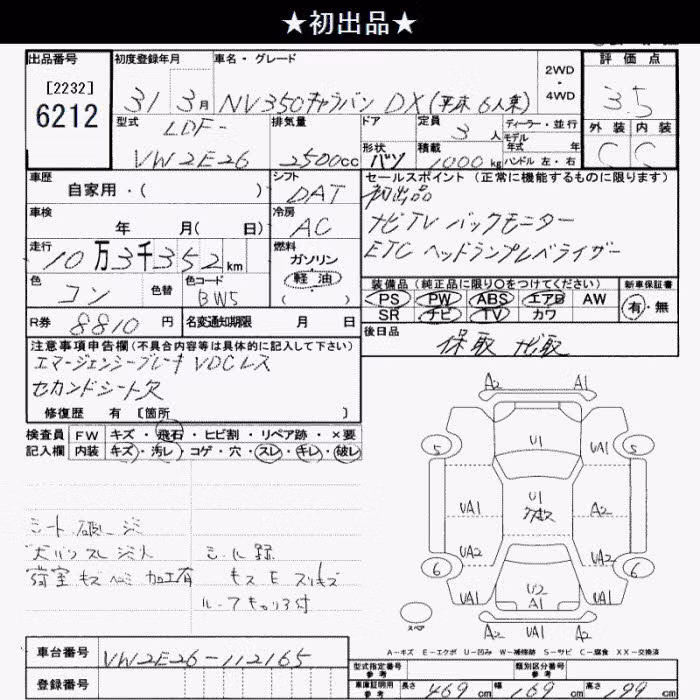 ★初出品★
出品番号 初度登録年月 車名・グレード 2WD・4WD 評価点
[2232]
6212
31 3月 NV350キャラバン DX(平床 6人乗) 3.5
型式 排気量 ドア 定員 3人 ディーラー・並行 外装 内装
モデル年式 年
LDF-
VW2E26 2500cc 形状 バン 積載 1000kg ハンドル 左・右 C C
車歴 シフト セールスポイント(正常に機能するものに限ります)
自家用・( ) DAT 初出品
車検 冷房 ナビTV バックモニター
年 月( 日) AC ETC ヘッドランプレベライザー
走行 燃料
10万3千352km ガソリン
軽油
( )
色 色替 色コード 装備品(純正品に限り〇をつけてください) 新車保証書
コン BW5 PS PW ABS エアB AW 有・無
SR ナビ TV カワ
R券 8810円 名変通知期限 月 日 後日品
保取 ナビ取
注意事項申告欄(不具合内容等は具体的に記入して下さい)
エマージェンシーブレーキ VDCレス
セカンドシート欠
修復歴 有 [箇所 ]
検査員 FW キズ・飛石・ヒビ割・リペア跡・×要
記入欄 内装 キズ・汚レ・コゲ・穴・スレ・キレ・破レ
A2 A1
5 U1 5
UA1 UA1
UA1 U1 A2
UA2 A2
6 U2 6
UA1 A1 UA1
A2 UA1 A2
スペア
A-キズ E-エクボ U-凹み W-補修跡 S-サビ C-腐食 XX-交換済
車台番号 VW2E26-112165
登録番号
型式指定番号 参考 類別区分番号 参考
車庫証明用 参考 長さ 469cm 幅 169cm 高さ 199cm